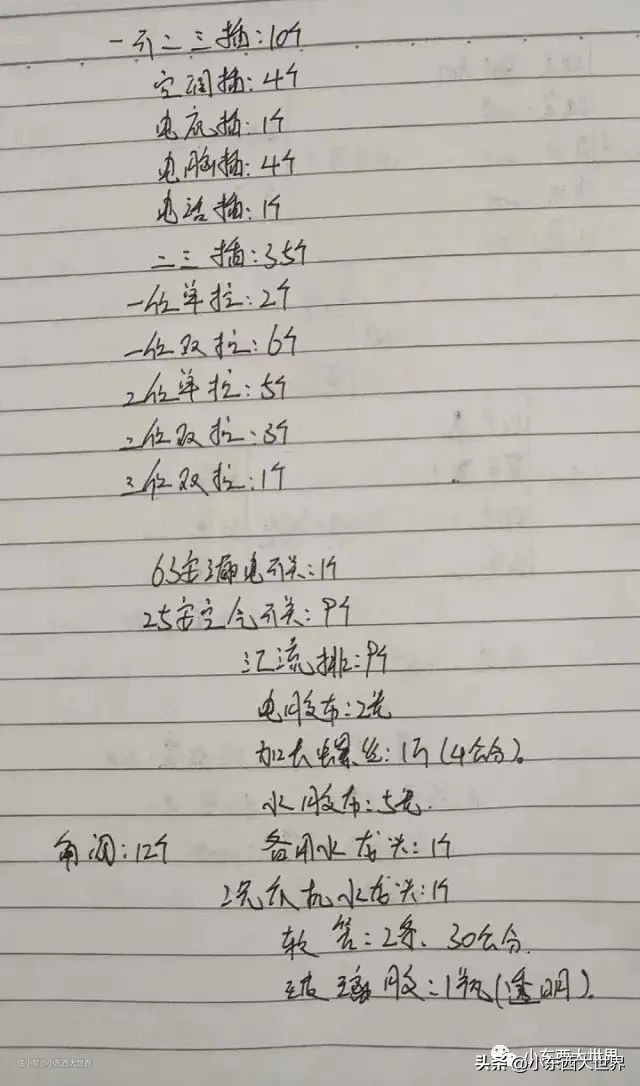 一开二三插:10个
空调插:4个
电视插:1个
电脑插:4个
电话插:1个
二三插:35个
一位单控:2个
一位双控:6个
2位单控:5个
二位双控:3个
三位双控:1个
63安漏电开关:1个
25安空气开关:9个
汇流排:9个
电胶布:2卷
加长螺丝:1斤(4公分)。
水胶布:5卷.
角阀:12个 备用水龙头:1个
洗衣机水龙头:1个
软管:2条、30公分.
玻璃胶:1瓶(透明)。
住小帮@小东西大世界
小东西大世界
头条@小东西大世界